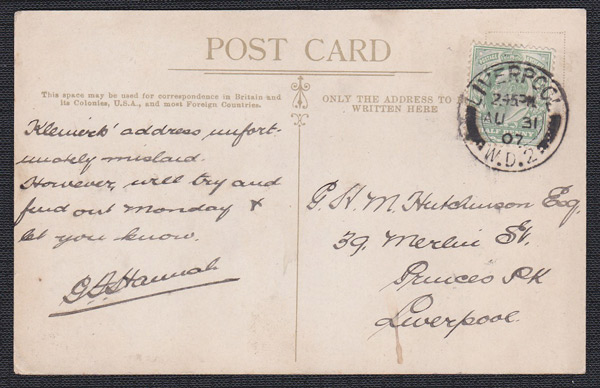 POST CARD
This space may be used for correspondence in Britain and
its Colonies, U.S.A., and most Foreign Countries.
ONLY THE ADDRESS TO BE
WRITTEN HERE
address unfort-
unately mislaid.
However, will try and
find out Monday &
let you know.
Hannah
G. H. M. Hutchinson Esq.
39, Merlin St.
Princes Pk
Liverpool.
LIVERPOOL
2.45 PM
AU 31
07
W.D.2
HALF